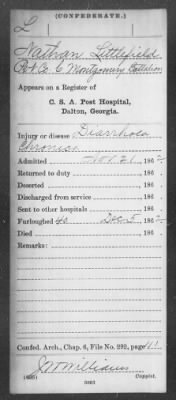 (CONFEDERATE.)
L
Nathan Littlefield
Pvt Co. C Montgomery Battalion
Appears on a Register of
C. S. A. Post Hospital,
Dalton, Georgia.
Injury or disease Diarrhoea
Chronics
Admitted Nov. 21, 1862
Returned to duty , 186 .
Deserted , 186 .
Discharged from service , 186 .
Sent to other hospitals , 186 .
Furloughed 40 Dec 5, 1862
Died , 186 .
Remarks:
Confed. Arch., Chap. 6, File No. 292, page 11
J W Williams
(635) Copyist.